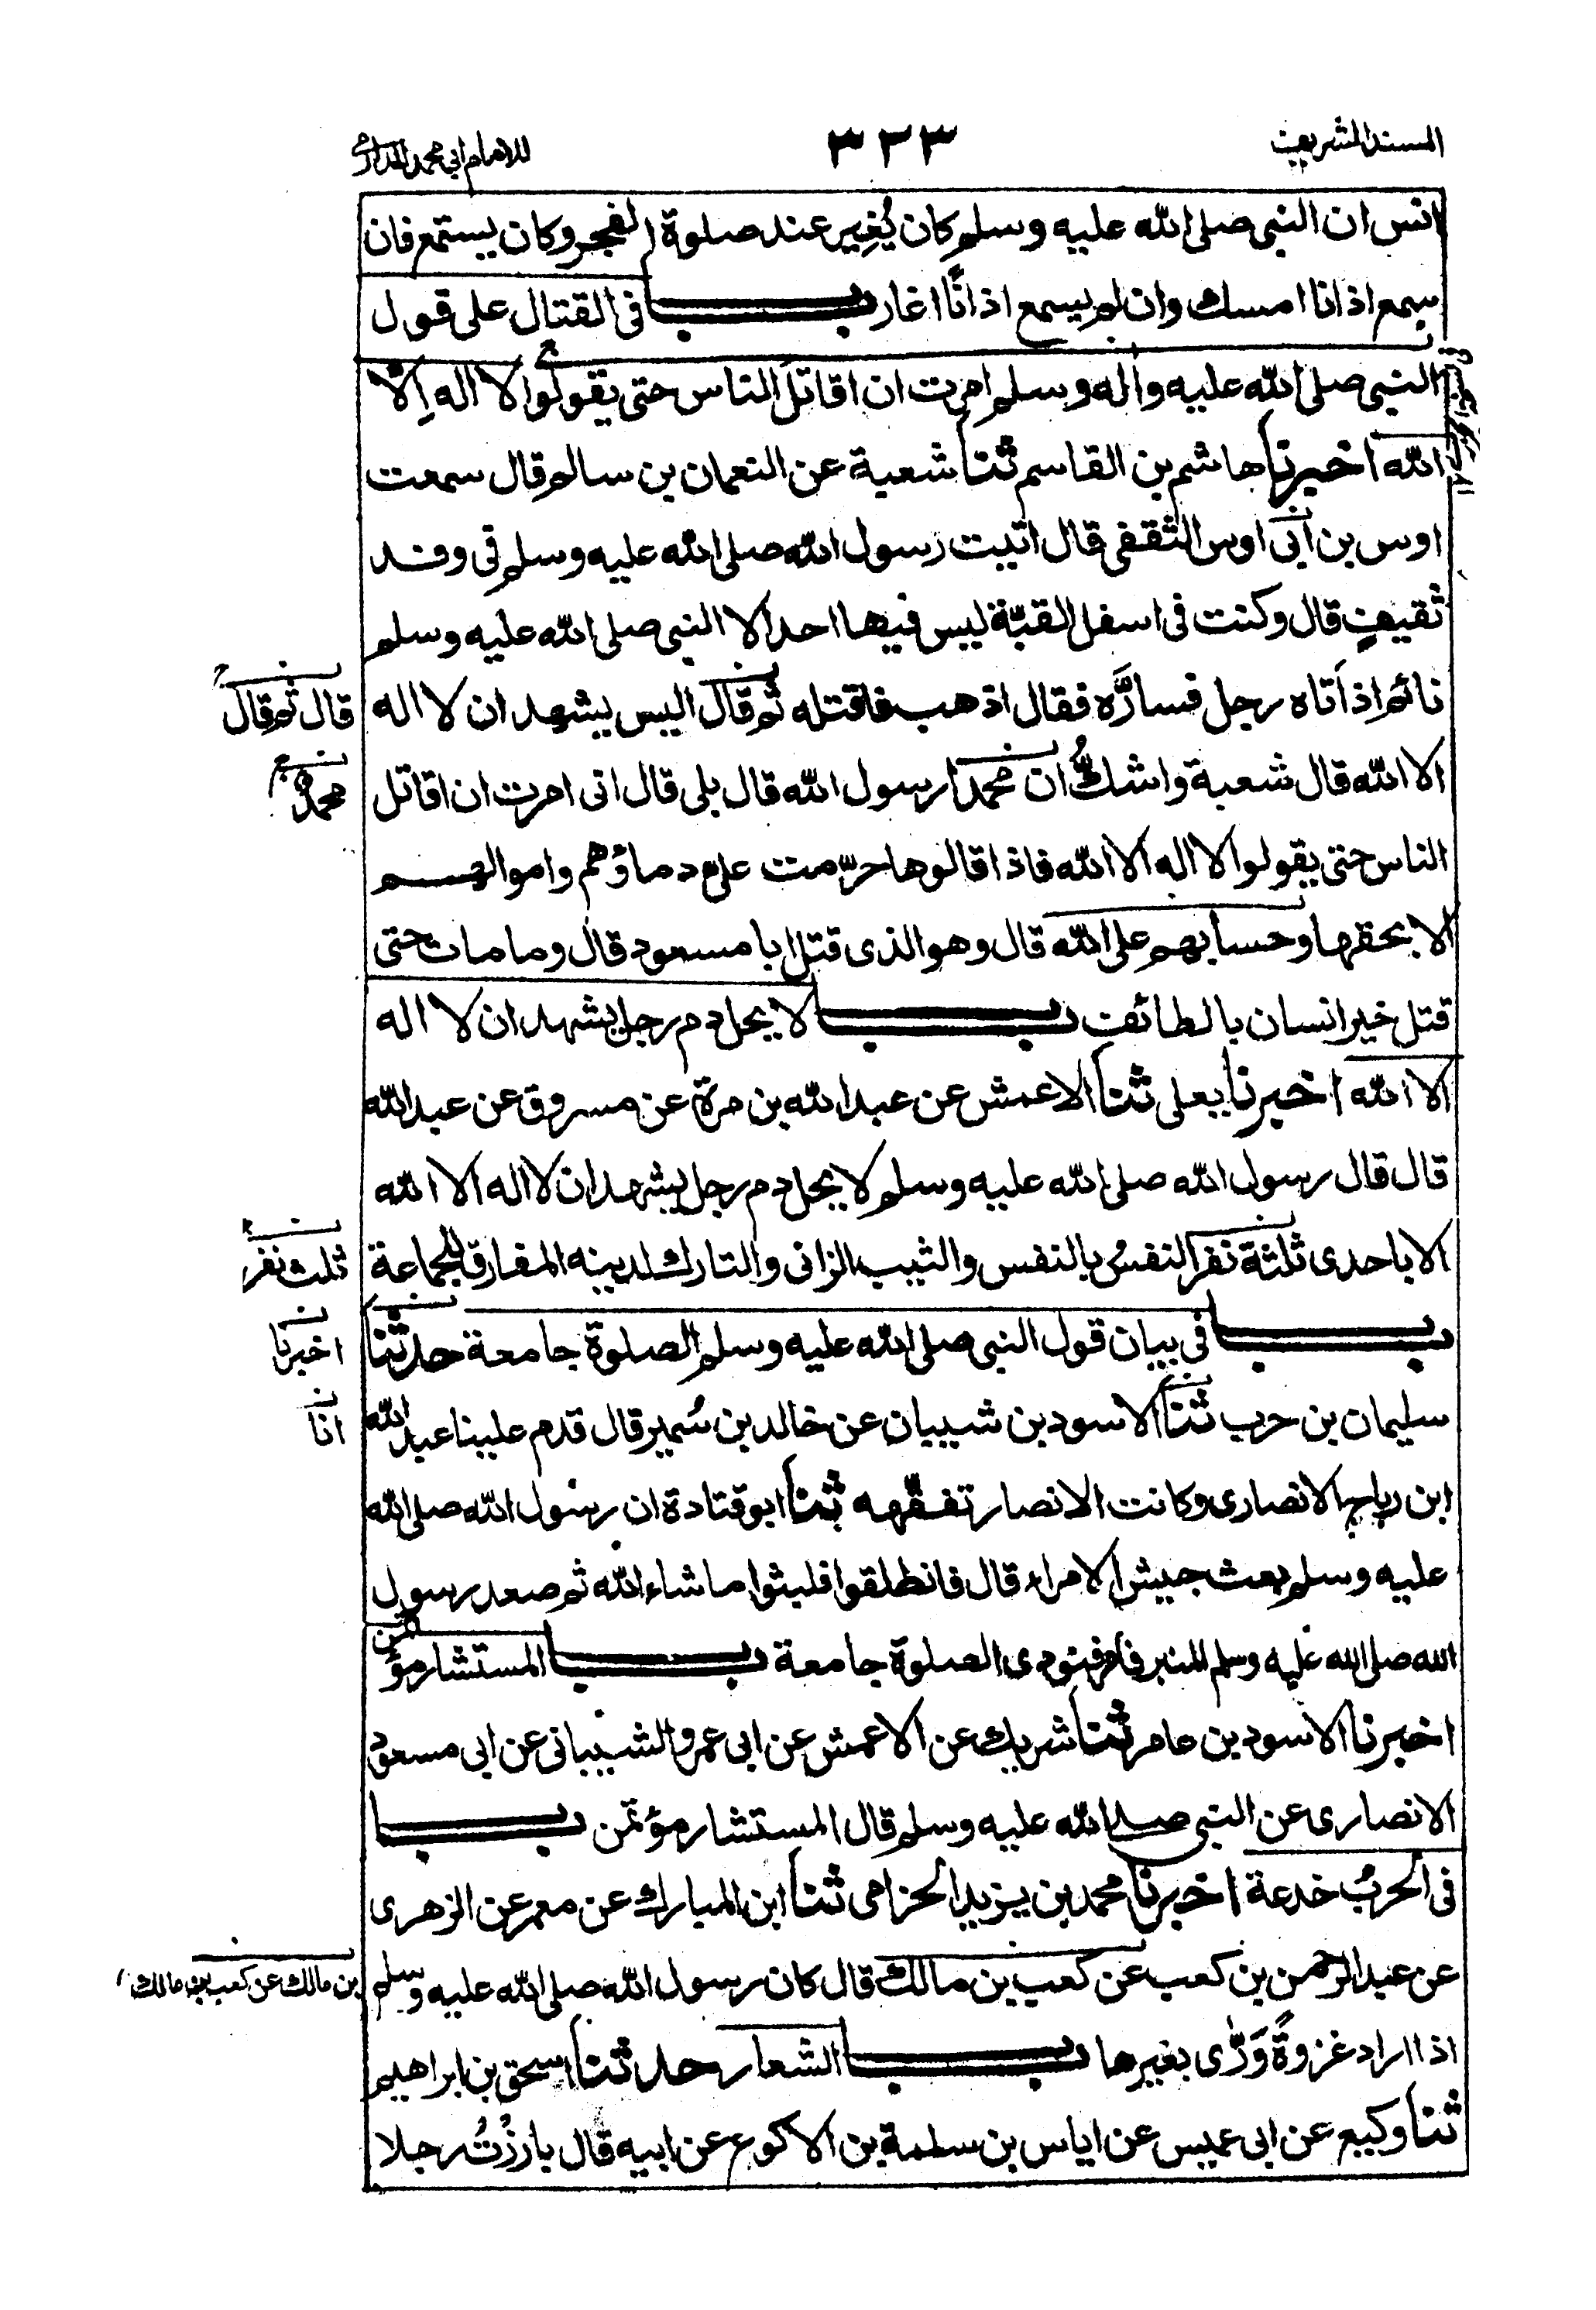 المسند الشريف
٣٢٣
للامام ابي محمد الدارمي
انس ان النبى صلى الله عليه وسلم كان يُغِير عند صلوة الفجر وكان يستمع فان
سمع اذانا امسك وان لم يسمع اذانًا اغار بــــــاب فى القتال على قول
النبى صلى الله عليه واله وسلم امرت ان اقاتل الناس حتى يقولوا لا اله اِلّا
الله اخبرنا هاشم بن القاسم ثنا شعبة عن النعمان بن سالم قال سمعت
اوس بن ابى اوس الثقفى قال اتيت رسول الله صلى الله عليه وسلم فى وفد
ثقيفٍ قال وكنت فى اسفل القبّة ليس فيها احد الا النبى صلى الله عليه وسلم
نائم اذ اَتاه رجل فسارَّه فقال اذهب فاقتله ثم قال اليس يشهد ان لا اله
قال ثم قال
الا الله قال شعبة واشكُّ ان محمدا رسول الله قال بلى قال انى امرت ان اقاتل
محمد
الناس حتى يقولوا لا اله الا الله فاذا قالوها حرّمت على دماؤهم واموالهم
الا بحقها وحسابهم على الله قال وهو الذى قتل ابا مسعود قال وما مات حتى
قتل خير انسان بالطائف بــــــاب لا يحل دم رجل يشهد ان لا اله
الا الله اخبرنا يعلى ثنا الاعمش عن عبد الله بن مرة عن مسروق عن عبد الله
قال قال رسول الله صلى الله عليه وسلم لا يحل دم رجل يشهد ان لا اله الا الله
الا باحدى ثلثة نفر النفسُ بالنفس والثيب الزانى والتارك لدينه المفارق للجماعة
ثلث نفر
بــــــاب فى بيان قول النبى صلى الله عليه وسلم الصلوة جامعة حدثنا
اخبرنا
سليمان بن حرب ثنا الاسود بن شيبان عن خالد بن سُمير قال قدم علينا عبد الله
انا
ابن رباح الانصارى وكانت الانصار تفقّهه ثنا ابو قتادة ان رسول الله صلى الله
عليه وسلم بعث جيش الامراء قال فانطلقوا فلبثوا ما شاء الله ثم صعد رسول
الله صلى الله عليه وسلم المنبر فامر فنودى الصلوة جامعة بــــــاب المستشار مؤتمن
اخبرنا الاسود بن عامر ثنا شريك عن الاعمش عن ابى عمرو الشيبانى عن ابى مسعود
الانصارى عن النبى صلى الله عليه وسلم قال المستشار مؤتمن بــــــاب
فى الحربُ خدعة اخبرنا محمد بن يزيد الحزامى ثنا ابن المبارك عن معمر عن الزهرى
عن عبد الرحمن بن كعب عن كعب بن مالك قال كان رسول الله صلى الله عليه وسلم
بن مالك عن كعب بن مالك
اذا اراد غزوةً وَرّٰى بغيرها بــــــاب الشعار حدثنا اسحق بن ابراهيم
ثنا وكيع عن ابى عميس عن اياس بن سلمة بن الاكوع عن ابيه قال بارزْتُ رجلا